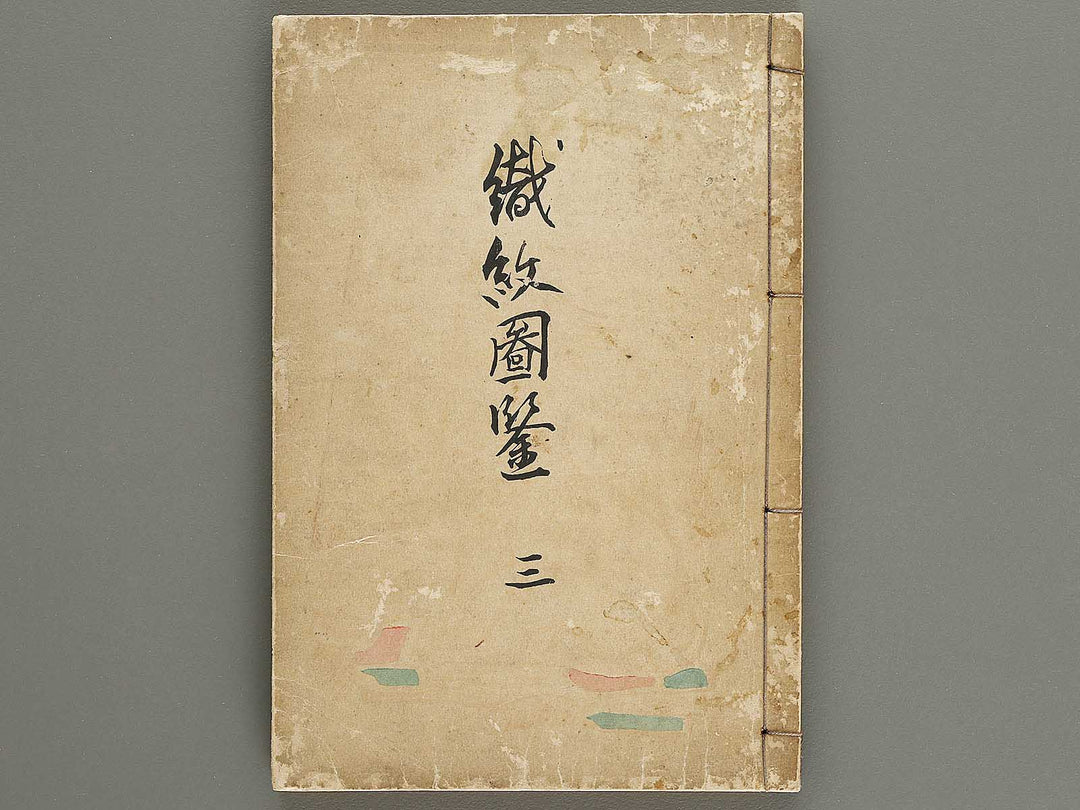 織紋圖鑒 三